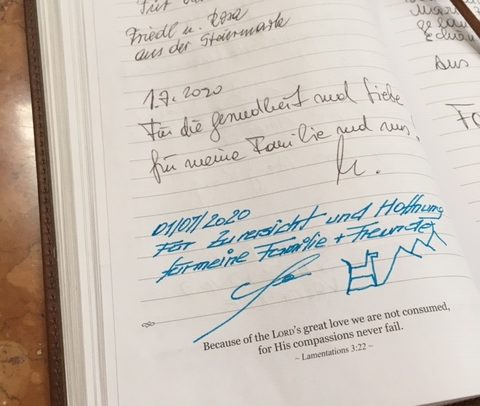 Für
Friedl u. Rosa
aus der Steiermark
1.7.2020
Für die Gesundheit und Liebe
für meine Familie und uns!
M.
01/07/2020
Für Zuversicht und Hoffnung
für meine Familie + Freunde
Because of the LORD's great love we are not consumed,
for His compassions never fail.
~ Lamentations 3:22 ~
Aus